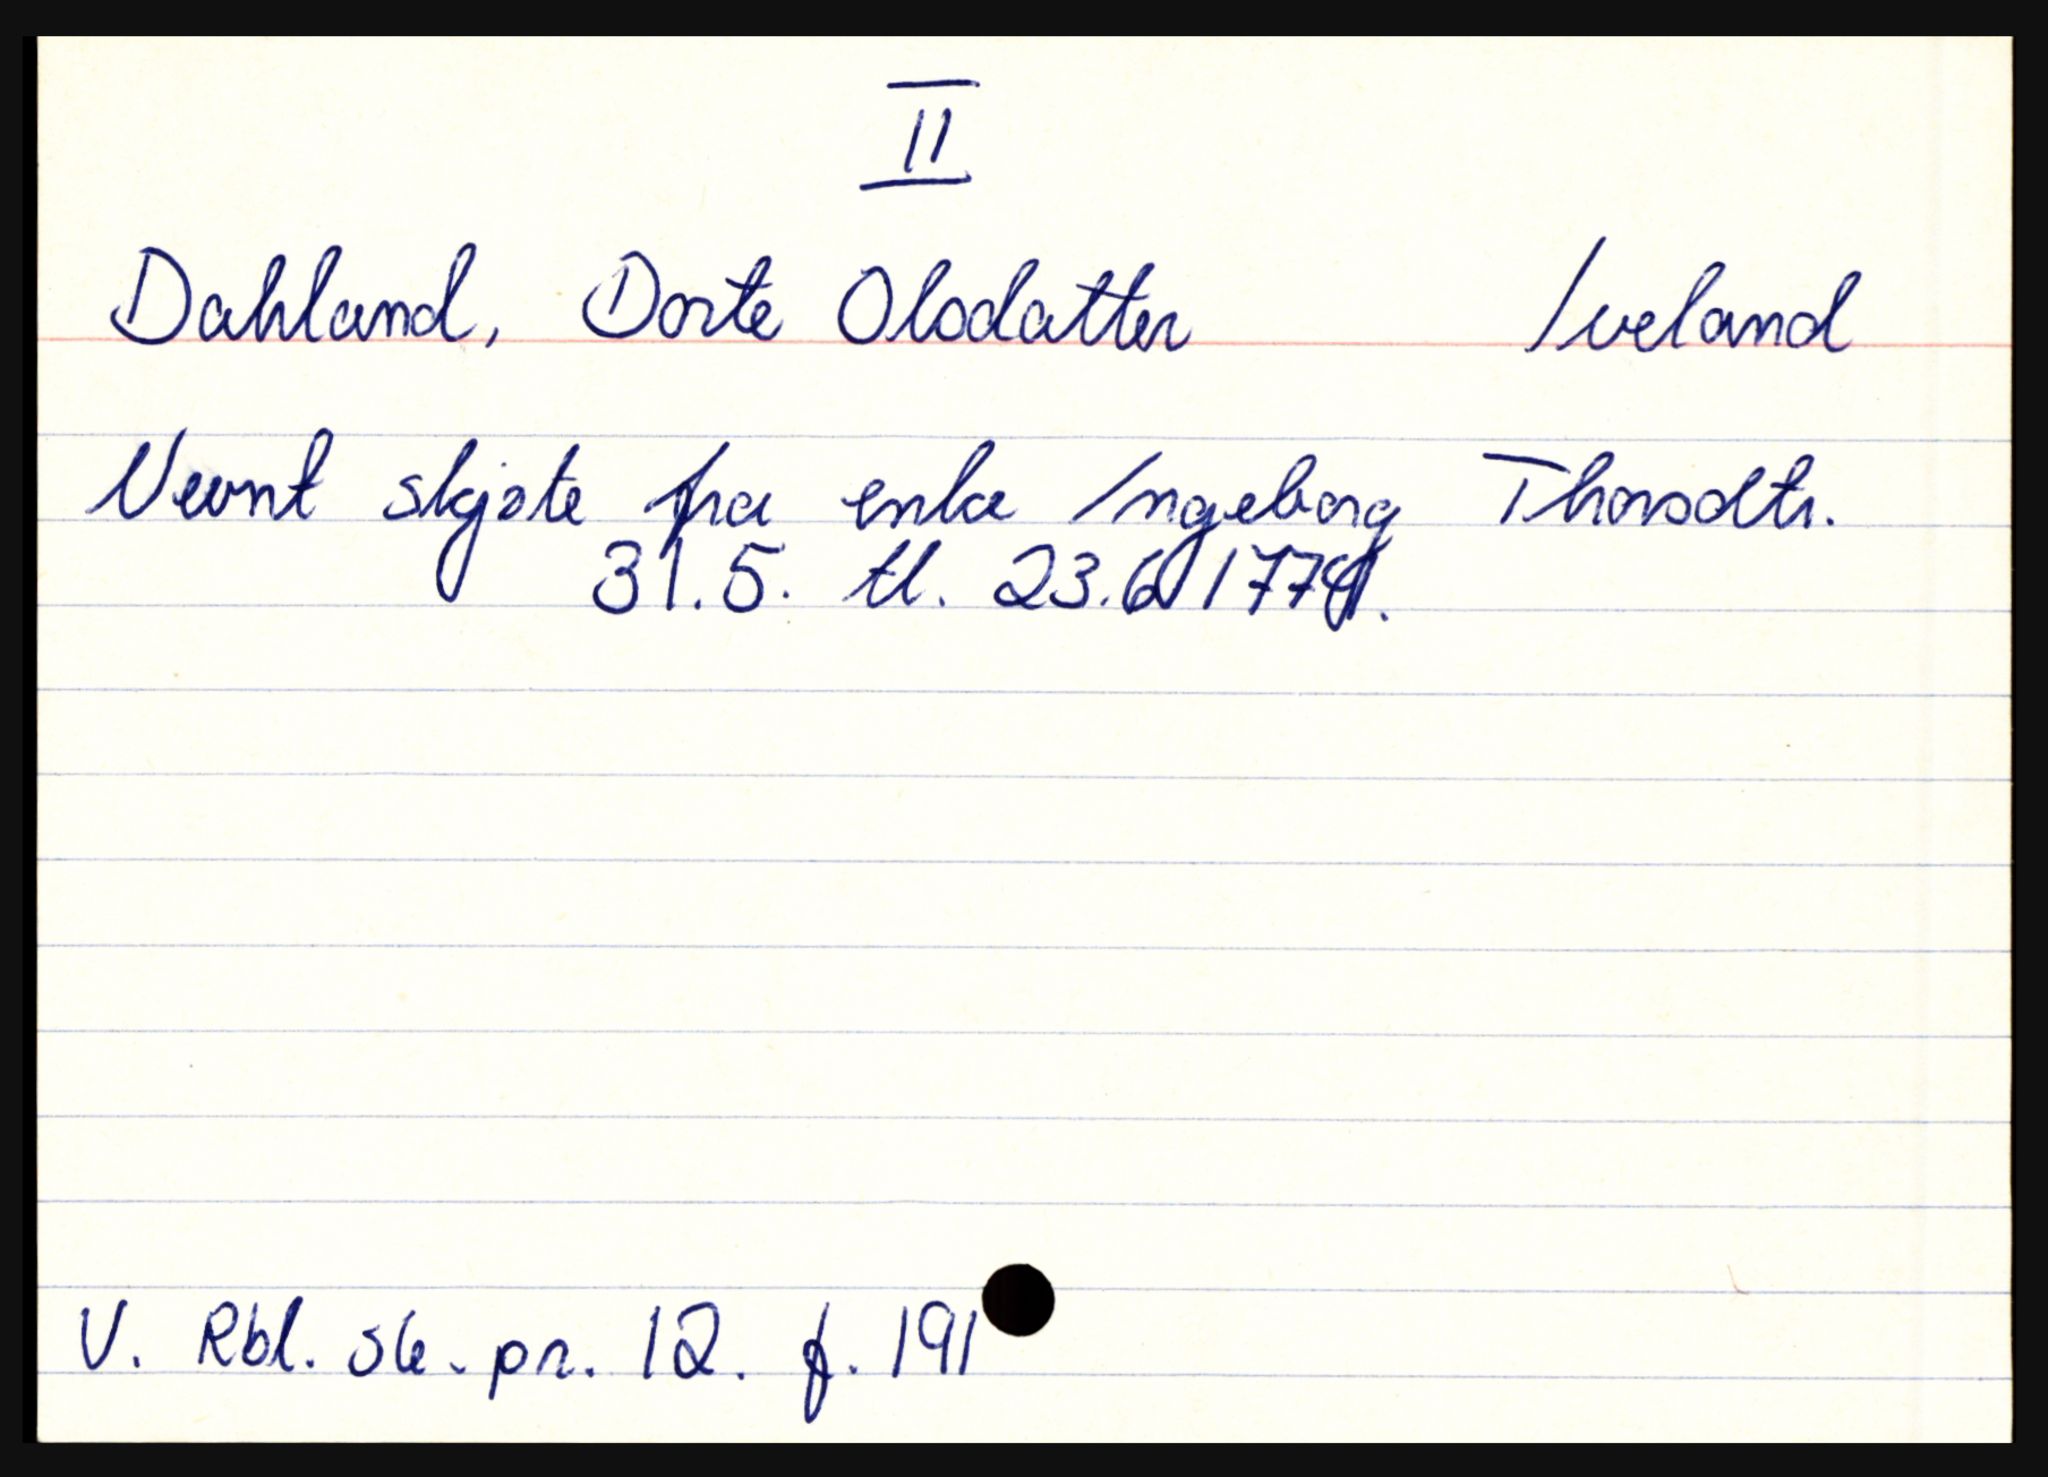 II
Dahland, Dorte Olsdatter Iveland
Nevnt skjøte fra enke Ingeborg Thorsdtr.
31.5. tl. 23.6
V. Rbl. sk. pr. 12. f. 191